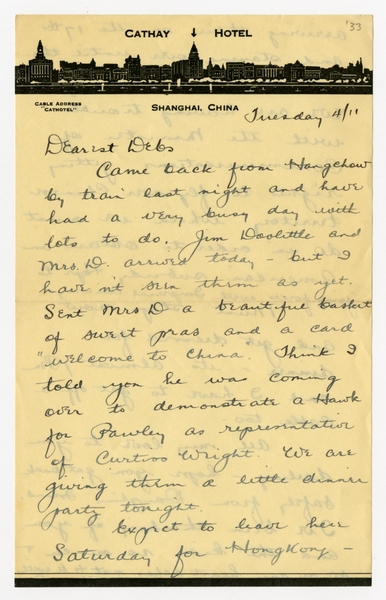 '33
CATHAY HOTEL
CABLE ADDRESS
"CATHOTEL"
SHANGHAI, CHINA
Tuesday 4/11
Dearest Debs
Came back from Hangchow
by train last night and have
had a very busy day with
lots to do. Jim Doolittle and
Mrs. D. arrived today – but I
have n't seen them as yet.
Sent Mrs D a beautiful basket
of sweet peas and a card
"Welcome to China. Think I
told you he was coming
over to demonstrate a Hawk
for Pawley as representative
of Curtiss Wright. We are
giving them a little dinner
party tonight.
Expect to leave here
Saturday for HongKong –